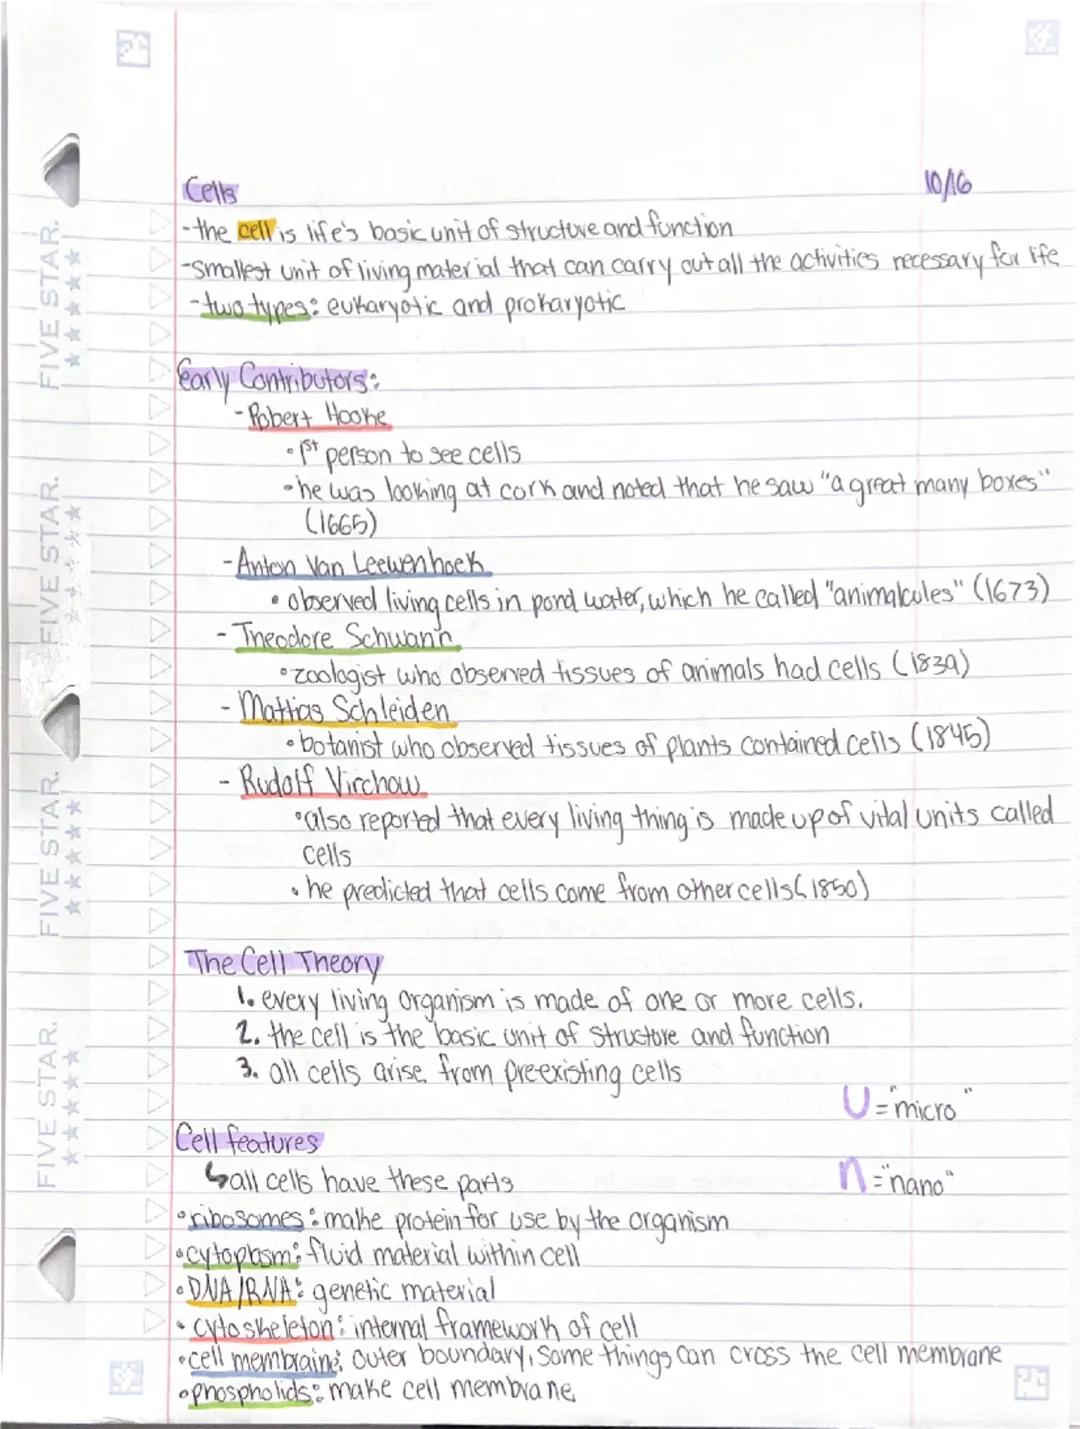 Cells
10/16
-the cell is life's basic unit of structure and function
-Smallest unit of living material that can carry out all the activities necessary for life
-two types: eukaryotic and prokaryotic
Early Contributors:
-Robert Hooke
•1st person to see cells
•he was looking at cork and noted that he saw "a great many boxes"
(1665)
-Anton Van Leewenhoek
• observed living cells in pond water, which he called "animalcules" (1673)
- Theodore Schwann
•zoologist who observed tissues of animals had cells (1839)
- Mattias Schleiden
•botanist who observed tissues of plants contained cells (1845)
- Rudolf Virchow
•also reported that every living thing is made up of vital units called
cells
• he predicted that cells come from other cells (1850)
The Cell Theory
1. every living organism is made of one or more cells.
2. the cell is the basic unit of structure and function
3. all cells arise from pre-existing cells
U = "micro"
Cell features
↳all cells have these parts
n = "nano"
•ribosomes: make protein for use by the organism
•cytoplasm: fluid material within cell
•DNA/RNA: genetic material
• cytoskeleton: internal framework of cell
•cell membraine: outer boundary, some things can cross the cell membrane
•phospholids: make cell membrane
FIVE STAR.
FIVE STAR.
FIVE STAR.
FIVE STAR.